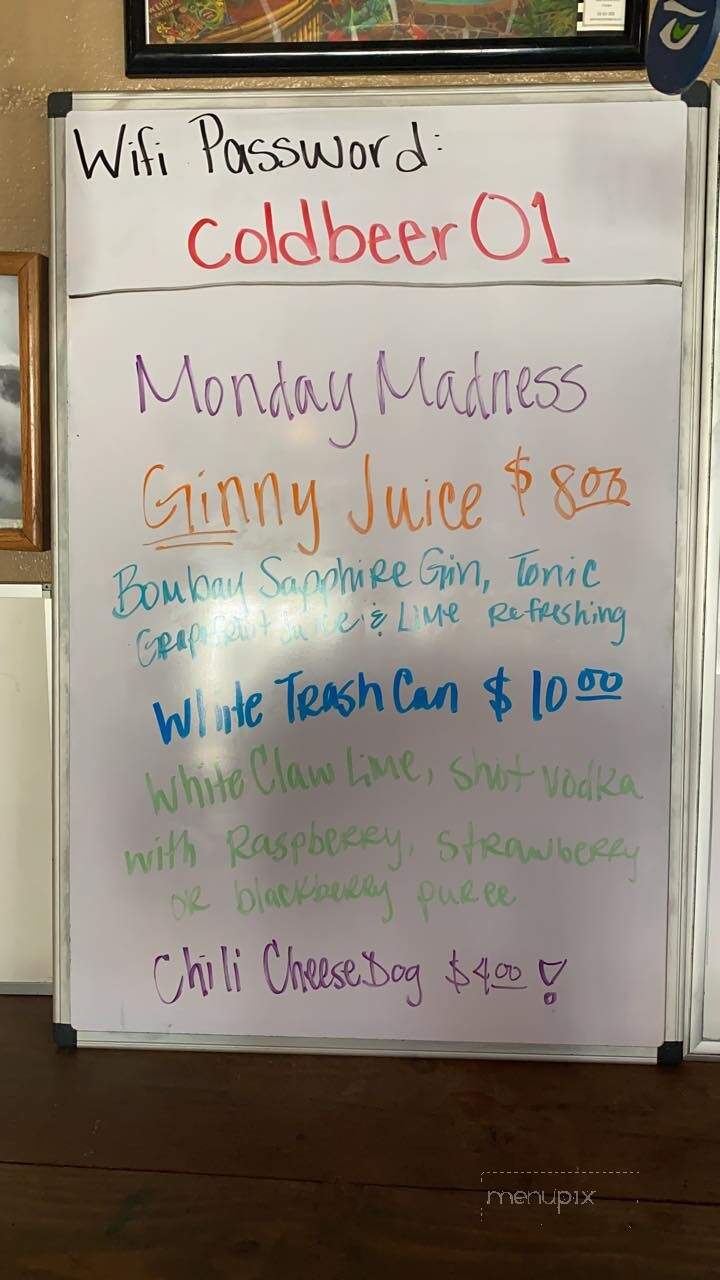 Wifi Password:
coldbeer01
Monday Madness
Ginny Juice $8.00
Bombay Sapphire Gin, Tonic
Grapefruit Juice & Lime Refreshing
White Trash Can $10.00
White Claw Lime, shot vodka
with Raspberry, strawberry
or blackberry puree
Chili Cheese Dog $4.00!
menupix